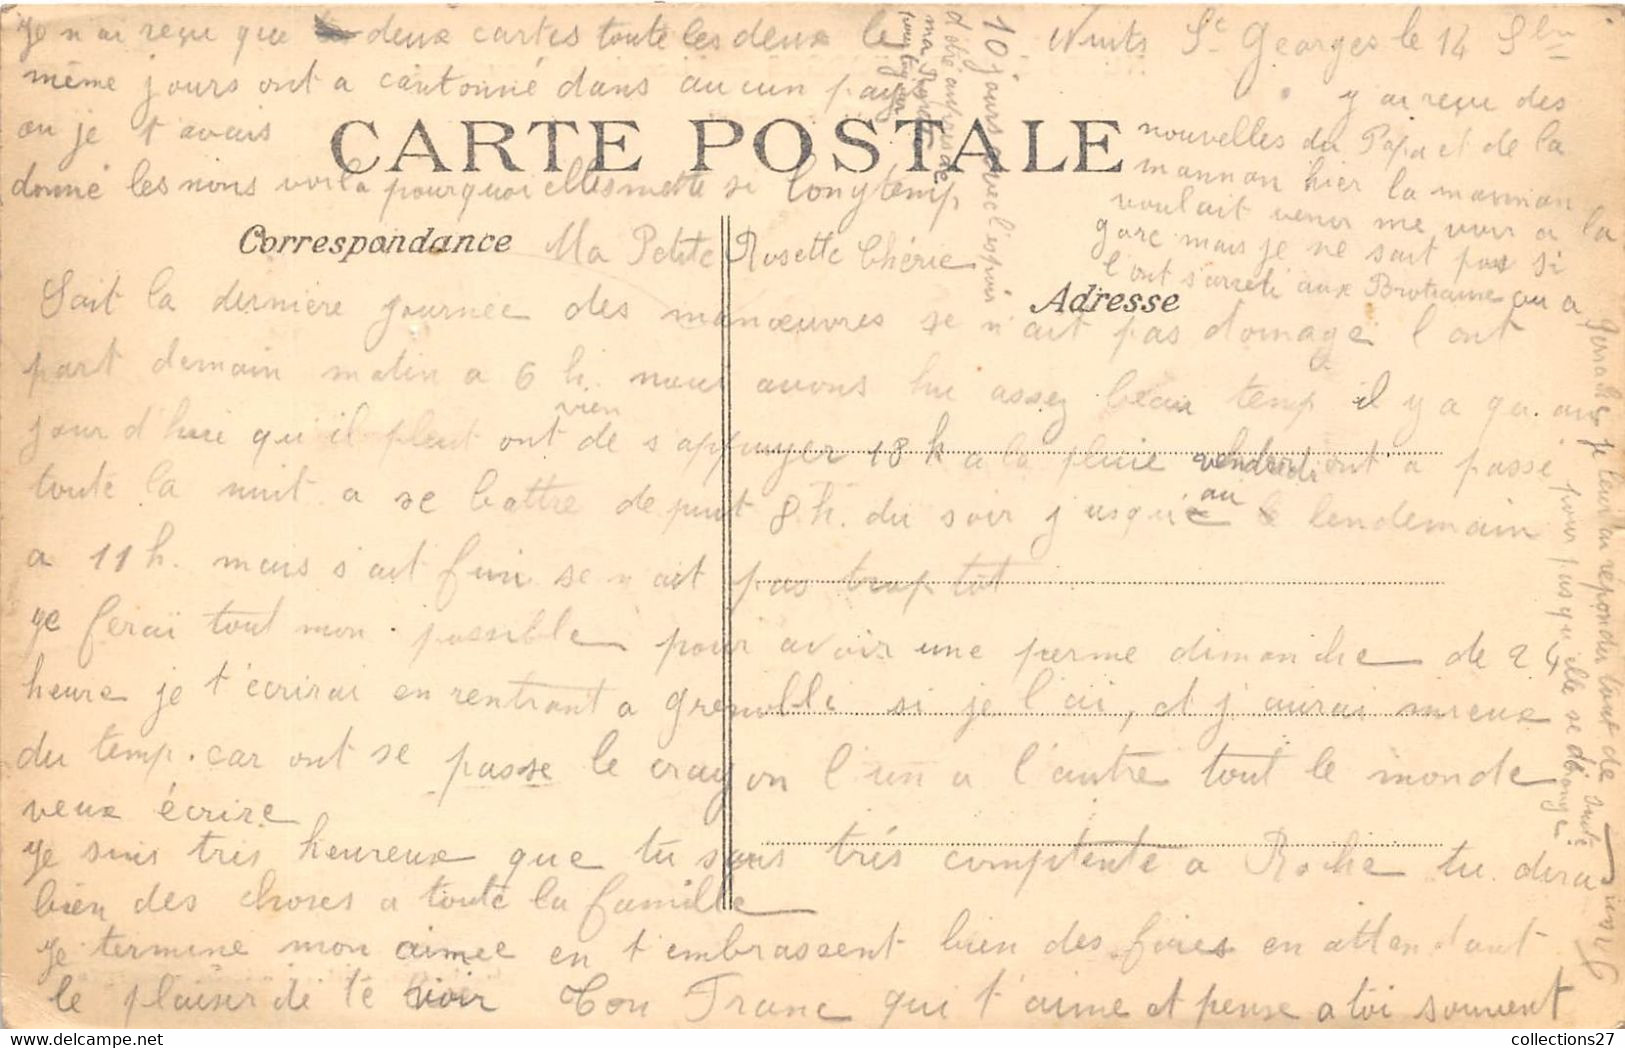 Nuits St Georges le 14 Sbre
Je n ai reçu que deux cartes toute les deux le
même jours ont a cantonné dans aucun pays
ou je t avais
donné les nons voila pourquoi elles mette si longtemp
y ai reçu des
nouvelles du Papa et de la
manman hier la manman
voulait venir me voir a la
gare mais je ne sait pas si
l ont s'arreti aux Brotteaux ou a
Perrache je leur ai répondu tout de suite
pour pas qu'elle se dérange.
CARTE POSTALE
Correspondance
Adresse
Ma Petite Rosette Chérie
Sait la dernière journée des manœuvres se n'ait pas domage l ont
part demain matin a 6 h. nous avons hu assez beau temp il y a qu au
jour d huie qu il pleut ont vien de s appuyer 18 k a la pluie vendredi ont a passé
toute la nuit a se battre depuit 8 h. du soir jusqu'au lendemain
a 11 h. mais s ait fini se n ait pas trop tôt
Je ferai tout mon possible pour avoir une perme dimanche de 24
heure je t'écrirai en rentrant a grenoble si je l'ai, et j aurai mieux
du temp. car ont se passe le crayon l'un a l'autre tout le monde
veux écrire
Je suis très heureux que tu sois très comptente a Roche tu dira
bien des choses a toute la famille
Je termine mon aimée en t'embrassent bien des foies en attendant
le plaisir de te voir Ton Franc qui t'aime et pense a toi souvent
10 jours avec l'espoir
d'être auprès de
ma Rosette
pour toujours
collections27